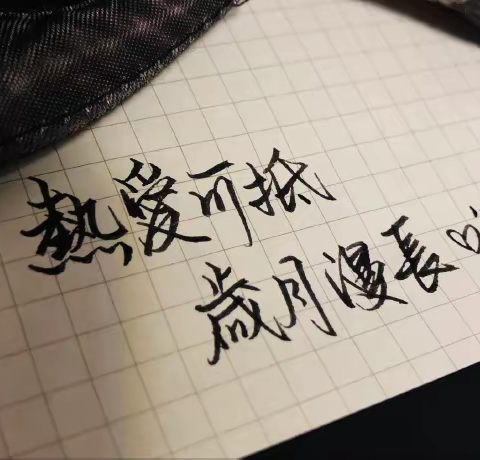 熱愛可抵
歲月漫長♡